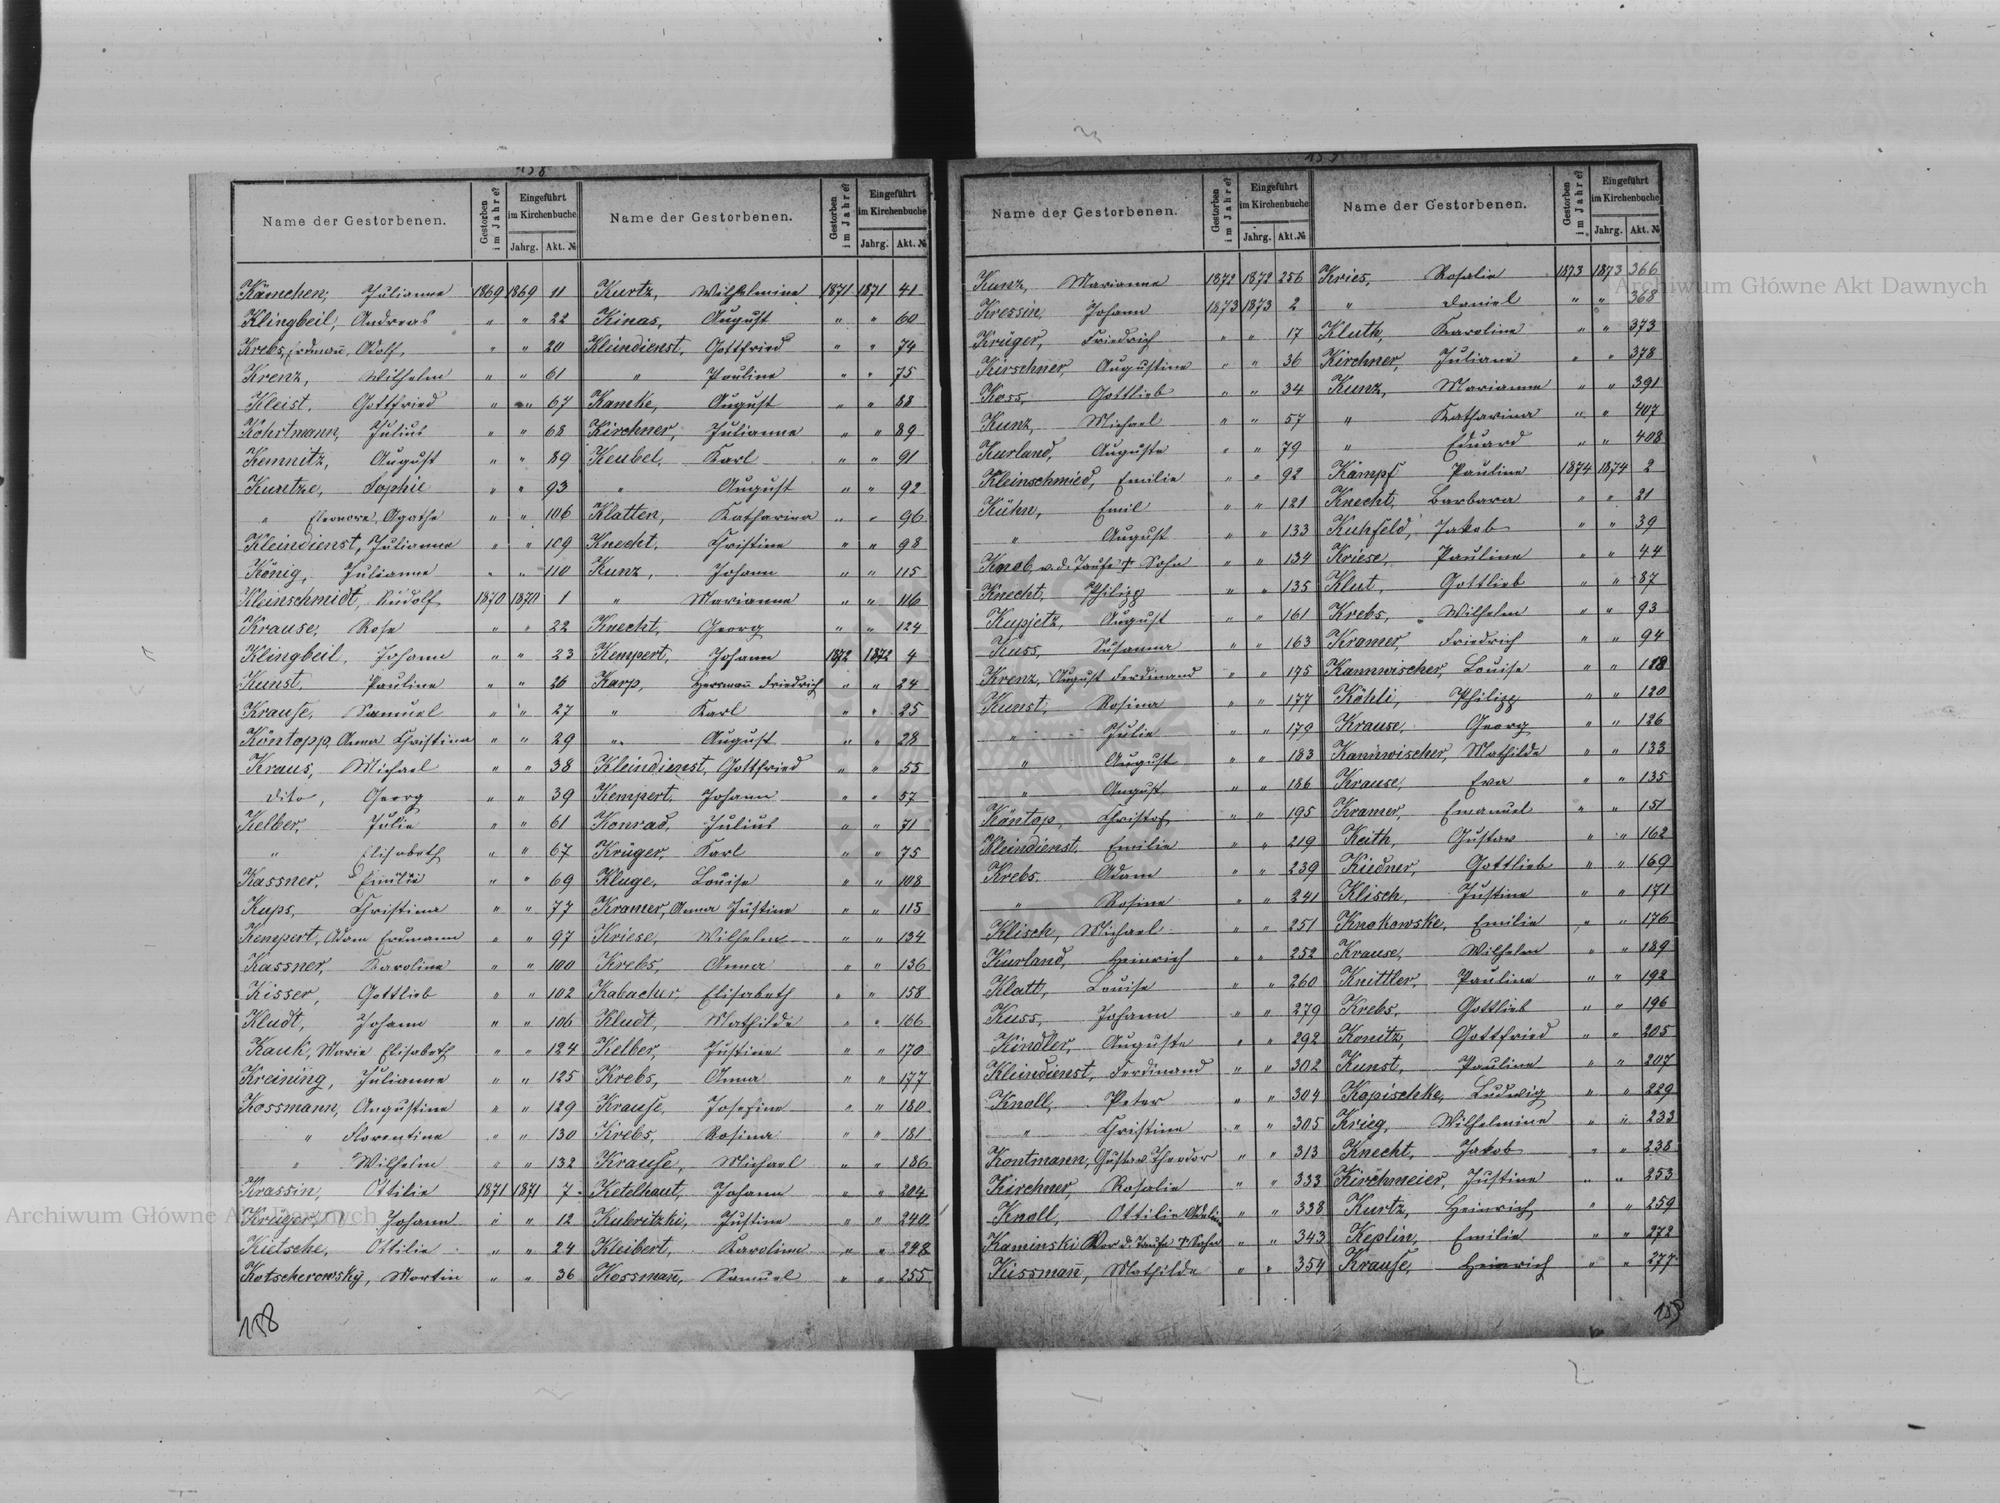 158
Name der Gestorbenen. Gestorben im Jahre? Eingeführt im Kirchenbuche Jahrg. Akt. №
Kämchen, Julianne 1869 1869 11
Klingbeil, Andreas " " 22
Krebs, Erdmañ, Adolf " " 20
Krenz, Wilhelm " " 61
Kleist, Gottfried " " 67
Köhrtmann, Julius " " 68
Kemnitz, August " " 89
Kuntze, Sophie " " 93
" Eleonore, Agathe " " 106
Kleindienst, Julianne " " 109
König, Julianne " " 110
Kleinschmidt, Rudolf 1870 1870 1
Krause, Rosa " " 22
Klingbeil, Johann " " 23
Kunst, Pauline " " 26
Krause, Samuel " " 27
Köntopp, Anna Christina " " 29
Kraus, Michael " " 38
dito, Georg " " 39
Kelber, Julie " " 61
" Elisabeth " " 67
Kassner, Emilie " " 69
Kups, Christina " " 77
Kempert, Adam Erdmann " " 97
Kassner, Karoline " " 100
Kisser, Gottlieb " " 102
Kludt, Johann " " 106
Kauk, Marie Elisabeth " " 124
Kreining, Julianne " " 125
Kossmann, Augustine " " 129
" Florentine " " 130
" Wilhelm " " 132
Krassin, Ottilie 1871 1871 7
Krüger, Johann " " 12
Kietsche, Ottilie " " 24
Kotscherowsky, Martin " " 36
158
Name der Gestorbenen. Gestorben im Jahre? Eingeführt im Kirchenbuche Jahrg. Akt. №
Kurtz, Wilhelmine 1871 1871 41
Kinas, August " " 60
Kleindienst, Gottfried " " 74
" Pauline " " 75
Kamke, August " " 88
Kirchner, Julianne " " 89
Keubel, Karl " " 91
" August " " 92
Klatten, Katharina " " 96
Knecht, Christine " " 98
Kunz, Johann " " 115
" Marianne " " 116
Knecht, Georg " " 124
Kempert, Johann 1872 1872 4
Karp, Hermañ Friedrich " " 24
" Karl " " 25
" August " " 28
Kleindienst, Gottfried " " 55
Kempert, Johann " " 57
Konrad, Julius " " 71
Krüger, Karl " " 75
Kluge, Louise " " 108
Kramer, Anna Justine " " 115
Kriese, Wilhelm " " 134
Krebs, Anna " " 136
Kabacher, Elisabeth " " 158
Kludt, Mathilde " " 166
Kelber, Justine " " 170
Krebs, Anna " " 177
Krause, Josefine " " 180
Krebs, Rosina " " 181
Krause, Michael " " 186
Ketelhaut, Johann " " 204
Kubritzki, Justine " " 240
Kleibert, Karoline " " 248
Kossmañ, Samuel " " 255
159
Name der Gestorbenen. Gestorben im Jahre? Eingeführt im Kirchenbuche Jahrg. Akt. №
Kunz, Marianne 1872 1872 256
Kressin, Johann 1873 1873 2
Krüger, Friedrich " " 17
Kirschner, Augustine " " 36
Koss, Gottlieb " " 34
Kunz, Michael " " 57
Kurland, Auguste " " 79
Kleinschmied, Emilie " " 92
Kühn, Emil " " 121
" August " " 133
Knob, v. d. Taufe † Sohn " " 134
Knecht, Philipp " " 135
Kupjetz, August " " 161
Kuss, Susanna " " 163
Krenz, August Ferdinand " " 175
Kunst, Rosina " " 177
" Julie " " 179
" August " " 183
" August " " 186
Köntop, Christof " " 195
Kleindienst, Emilie " " 219
Krebs, Adam " " 239
" Rosine " " 241
Klisch, Michael " " 251
Kurland, Heinrich " " 252
Klatt, Louise " " 260
Kuss, Johann " " 279
Kindler, Auguste " " 292
Kleindienst, Ferdinand " " 302
Knoll, Peter " " 304
" Christine " " 305
Kontmann, Gustav Theodor " " 313
Kirchner, Rosalie " " 333
Knoll, Ottilie " " 338
Kaminski Vor d. Taufe † Sohn " " 343
Kissmañ, Mathilde " " 354
Name der Gestorbenen. Gestorben im Jahre? Eingeführt im Kirchenbuche Jahrg. Akt. №
Kries, Rosalie 1873 1873 366
" Daniel " " 368
Kluth, Karoline " " 373
Kirchner, Juliane " " 378
Kunz, Marianne " " 391
" Katharina " " 407
" Eduard " " 408
Kämpf Pauline 1874 1874 2
Knecht, Barbara " " 21
Kuhfeld, Jakob " " 39
Kriese, Pauline " " 44
Klut, Gottlieb " " 87
Krebs, Wilhelm " " 93
Kramer, Friedrich " " 94
Kannwischer, Louise " " 118
Köhli, Philipp " " 120
Krause, Georg " " 126
Kannwischer, Mathilde " " 133
Krause, Eva " " 135
Kramer, Emanuel " " 151
Keith, Gustav " " 162
Kiedner, Gottlieb " " 169
Klisch, Justine " " 171
Knakowske, Emilie " " 176
Krause, Wilhelm " " 189
Knittler, Pauline " " 192
Krebs, Gottlieb " " 196
Konitz, Gottfried " " 205
Kunst, Pauline " " 207
Kopischke, Ludwig " " 229
Krieg, Wilhelmine " " 233
Knecht, Jakob " " 238
Kirchmeier, Justine " " 253
Kurtz, Heinrich " " 259
Keplin, Emilie " " 272
Krause, Heinrich " " 277
159
Archiwum Główne Akt Dawnych
Archiwum Główne Akt Dawnych